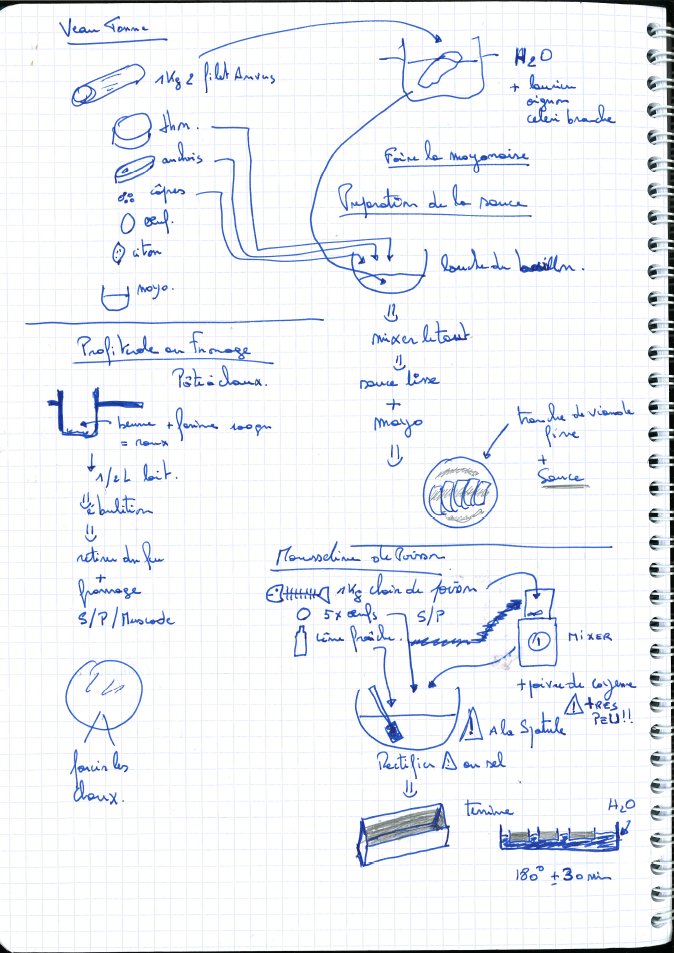 Veau Tonne
1Kg 2 filet Anvers
H₂O
+ laurier
oignon
celeri branche
thon.
anchois
câpres
œuf.
citron
mayo.
Faire la mayonaise
Préparation de la sauce
louche de bouillon.
mixer le tout
sauce lisse
+
mayo
tranche de viande
fine
+
Sauce
Profiterole au Fromage
Pâte à choux.
beurre + farine 100gr
= roux
1/2 L lait.
ébulition
retirer du feu
+
fromage
S/P/Muscade
farcir les
choux.
Mousseline de Poisson
1Kg chair de poisson
5x œufs
S/P
crême fraîche.
MIXER
+ poivre de cayenne
! +TRES
PEU!!
! A la Spatule
Rectifier ! au sel
terrine
H₂O
180° ± 30 min